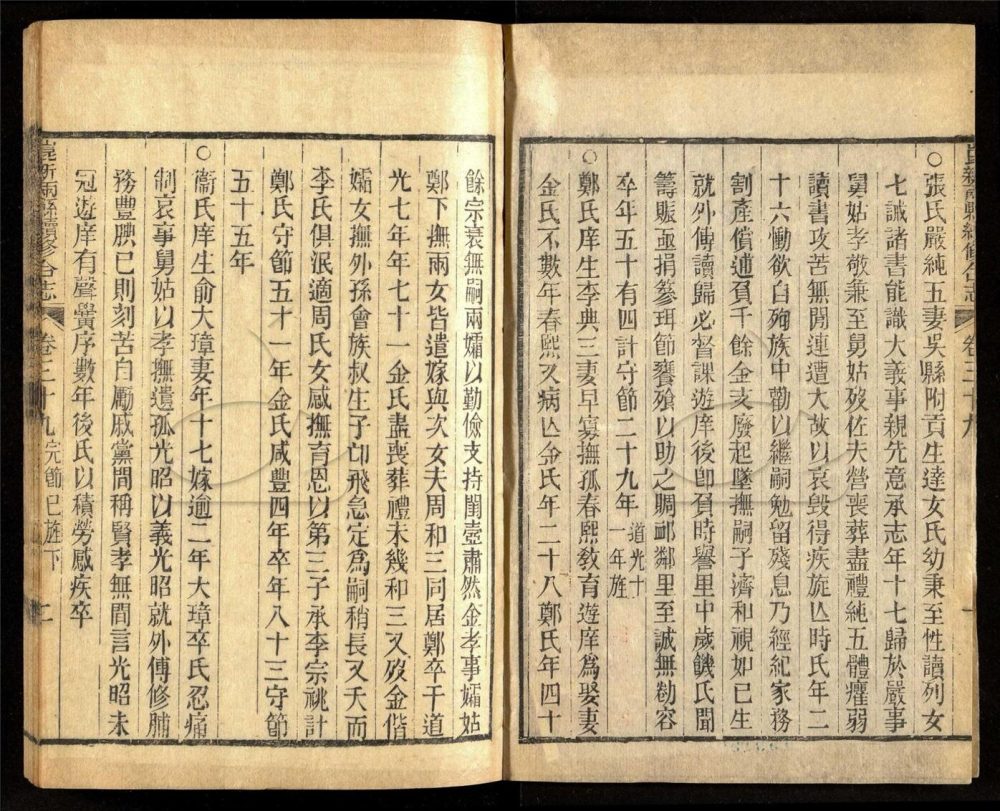 崑新兩縣續修合志 卷三十九
○張氏嚴純五妻吳縣附貢生達女氏幼秉至性讀列女
七誡諸書能識大義事親先意承志年十七歸於嚴事
舅姑孝敬兼至舅姑歿佐夫營喪葬盡禮純五體癯弱
讀書攻苦無閒連遭大故以哀毀得疾旋亾時氏年二
十六慟欲自殉族中勸以繼嗣勉留殘息乃經紀家務
割產償逋負千餘金支廢起墜撫嗣子濟和視如已生
就外傅讀歸必督課遊庠後卽負時譽里中歲饑氏聞
籌賑亟捐簪珥節饔飧以助之賙䘏鄰里至誠無勌容
卒年五十有四計守節二十九年道光十一年旌
○鄭氏庠生李典三妻早寡撫孤春熙敎育遊庠爲娶妻
金氏不數年春熙又病亾金氏年二十八鄭氏年四十
餘宗衰無嗣兩孀以勤儉支持閨壼肅然金孝事孀姑
鄭下撫兩女皆遣嫁與次女夫周和三同居鄭卒于道
光七年年七十一金氏盡喪葬禮未幾和三又歿金偕
孀女撫外孫會族叔生子卬飛急定爲嗣稍長又夭而
李氏俱泯適周氏女感撫育恩以第三子承李宗祧計
鄭氏守節五十一年金氏咸豐四年卒年八十三守節
五十五年
○衞氏庠生俞大璋妻年十七嫁逾二年大璋卒氏忍痛
制哀事舅姑以孝撫遺孤光昭以義光昭就外傅修脯
務豐腆已則刻苦自勵戚黨間稱賢孝無間言光昭未
冠遊庠有聲黌序數年後氏以積勞感疾卒
崑新兩縣續修合志 卷三十九 完節已旌下 二